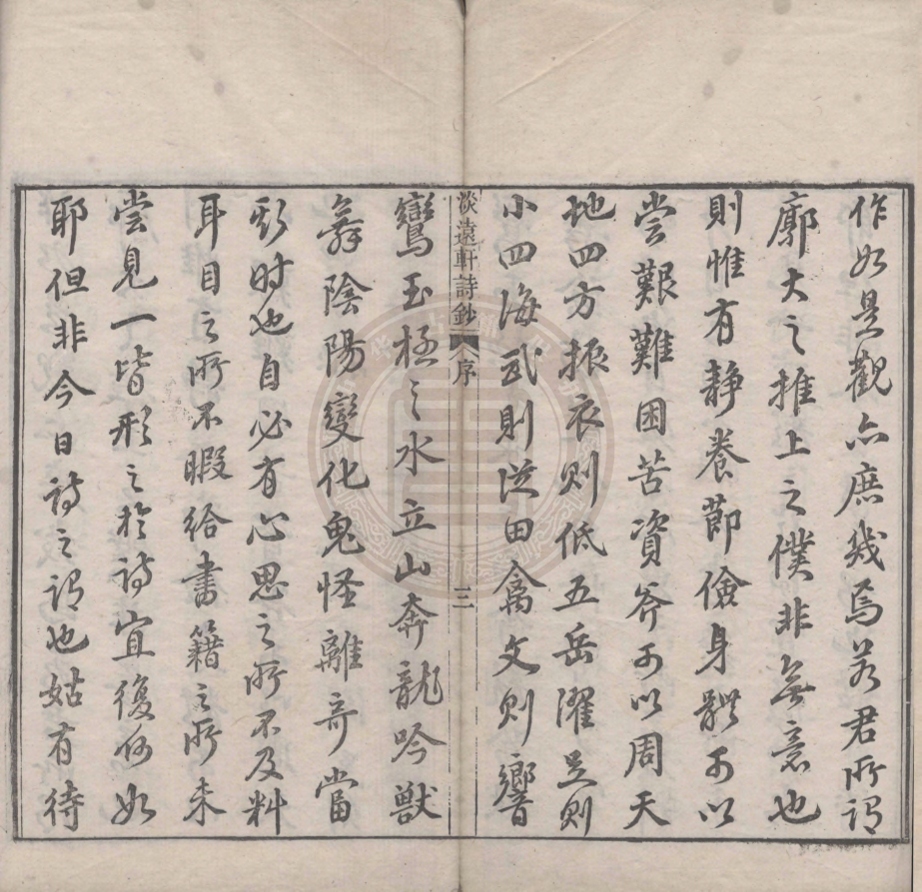 作如是觀亦庶幾焉若君所謂
廓大之推上之僕非無意也
則惟有靜養節儉身體可以
嘗艱難困苦資斧可以周天
地四方振衣則低五岳濯足則
小四海武則從田禽文則響
淡遠軒詩鈔 序 三
鸞玉極之水立山奔龍吟獸
舞陰陽變化鬼怪離奇當
斯時也自必有心思之所不及料
耳目之所不暇給書籍之所未
嘗見一皆形之於詩宜復何如
耶但非今日詩之謂也姑有待